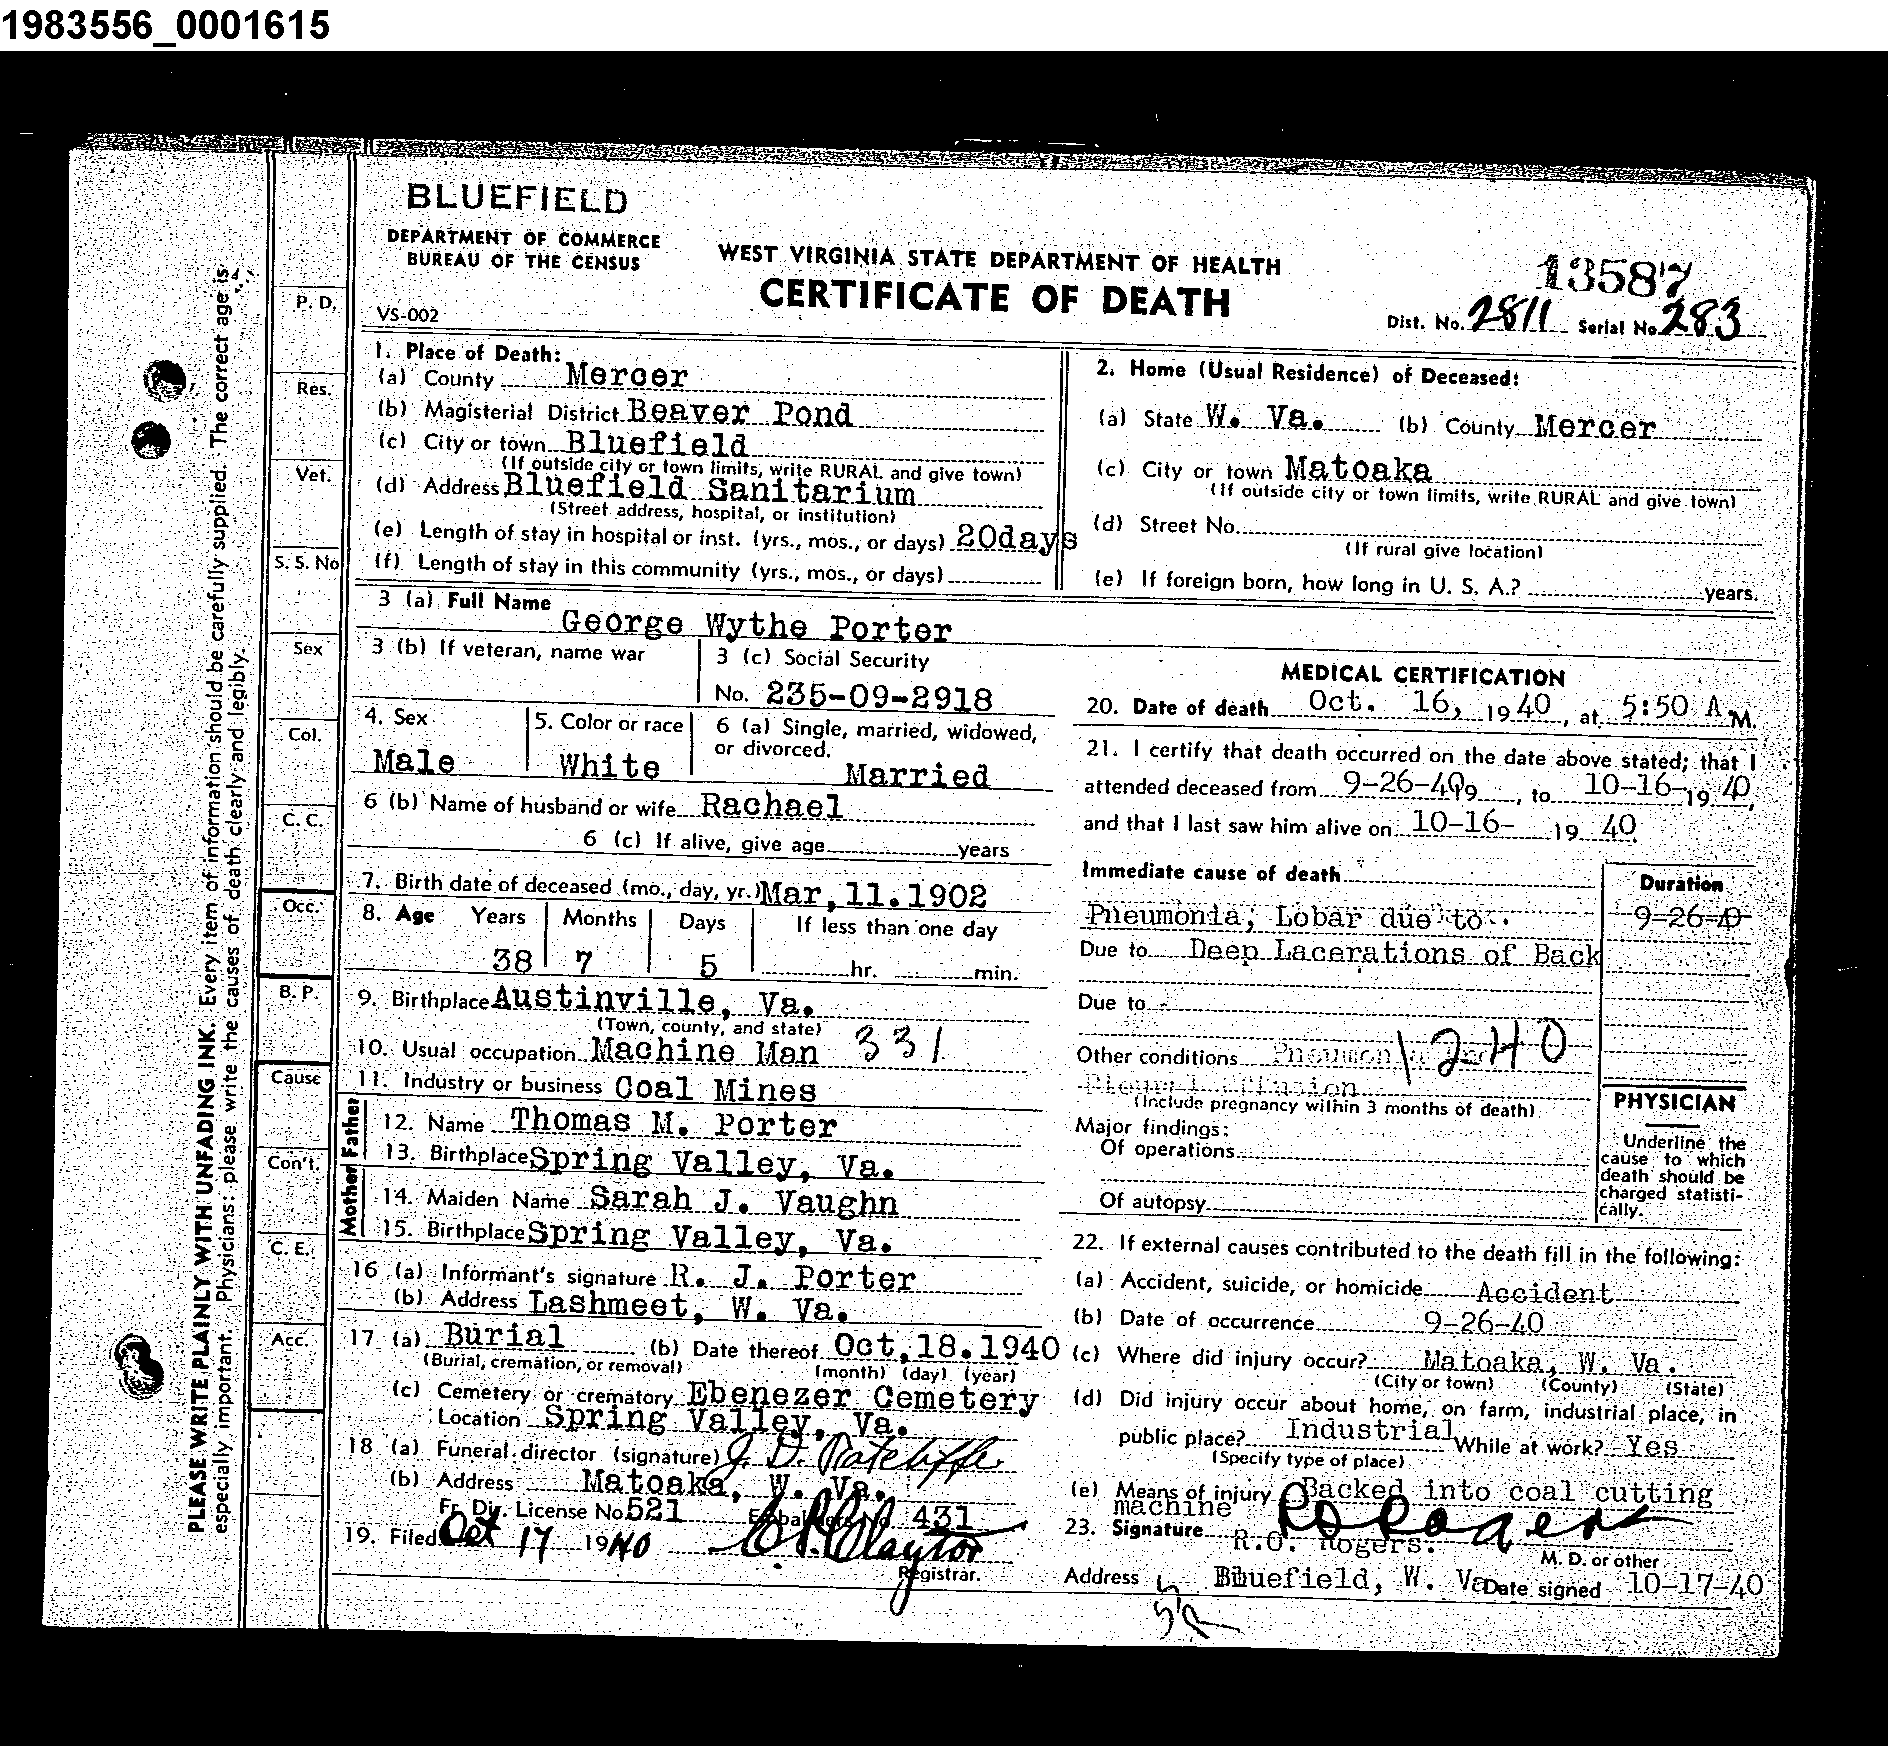 1983556_0001615
BLUEFIELD
DEPARTMENT OF COMMERCE
BUREAU OF THE CENSUS
VS-002
WEST VIRGINIA STATE DEPARTMENT OF HEALTH
CERTIFICATE OF DEATH
13587
Dist. No. 2811 Serial No. 283
PLEASE WRITE PLAINLY WITH UNFADING INK. Every item of information should be carefully supplied. The correct age is
especially important. Physicians: please write the causes of death clearly and legibly.
P. D.
Res.
Vet.
S. S. No
Sex
Col.
C. C.
Occ.
B. P.
Cause
Con't.
C. E.
Acc.
1. Place of Death:
(a) County Mercer
(b) Magisterial District Beaver Pond
(c) City or town Bluefield
(If outside city or town limits, write RURAL and give town)
(d) Address Bluefield Sanitarium
(Street address, hospital, or institution)
(e) Length of stay in hospital or inst. (yrs., mos., or days) 20days
(f) Length of stay in this community (yrs., mos., or days)
2. Home (Usual Residence) of Deceased:
(a) State W. Va. (b) County Mercer
(c) City or town Matoaka
(If outside city or town limits, write RURAL and give town)
(d) Street No.
(If rural give location)
(e) If foreign born, how long in U. S. A.? years.
3 (a) Full Name George Wythe Porter
3 (b) If veteran, name war
3 (c) Social Security
No. 235-09-2918
4. Sex
Male
5. Color or race
White
6 (a) Single, married, widowed,
or divorced.
Married
6 (b) Name of husband or wife Rachael
6 (c) If alive, give age years
7. Birth date of deceased (mo., day, yr.) Mar, 11. 1902
8. Age Years Months Days If less than one day
38 7 5 hr. min.
9. Birthplace Austinville, Va.
(Town, county, and state)
10. Usual occupation Machine Man 331
11. Industry or business Coal Mines
Father
12. Name Thomas M. Porter
13. Birthplace Spring Valley, Va.
Mother
14. Maiden Name Sarah J. Vaughn
15. Birthplace Spring Valley, Va.
16 (a) Informant's signature R. J. Porter
(b) Address Lashmeet, W. Va.
17 (a) Burial (b) Date thereof Oct, 18. 1940
(Burial, cremation, or removal) (month) (day) (year)
(c) Cemetery or crematory Ebenezer Cemetery
Location Spring Valley, Va.
18 (a) Funeral director (signature) J. D. Ratcliffe
(b) Address Matoaka, W. Va.
Fr. Dir. License No. 521 431
19. Filed Oct 17 1940 Clayton
Registrar.
MEDICAL CERTIFICATION
20. Date of death Oct. 16, 1940, at 5:50 A M.
21. I certify that death occurred on the date above stated; that I
attended deceased from 9-26-40 19, to 10-16- 19 40,
and that I last saw him alive on 10-16- 19 40
Immediate cause of death
Duration
Pneumonia, Lobar due to 9-26-40
Due to Deep Lacerations of Back
Due to
Other conditions 1240
(Include pregnancy within 3 months of death)
Major findings:
Of operations
Of autopsy
PHYSICIAN
Underline the
cause to which
death should be
charged statisti-
cally.
22. If external causes contributed to the death fill in the following:
(a) Accident, suicide, or homicide Accident
(b) Date of occurrence 9-26-40
(c) Where did injury occur? Matoaka, W. Va.
(City or town) (County) (State)
(d) Did injury occur about home, on farm, industrial place, in
public place? Industrial While at work? Yes
(Specify type of place)
(e) Means of injury Backed into coal cutting
machine
23. Signature R O Rogers
R.O. Rogers. M. D. or other
Address Bluefield, W. Va Date signed 10-17-40